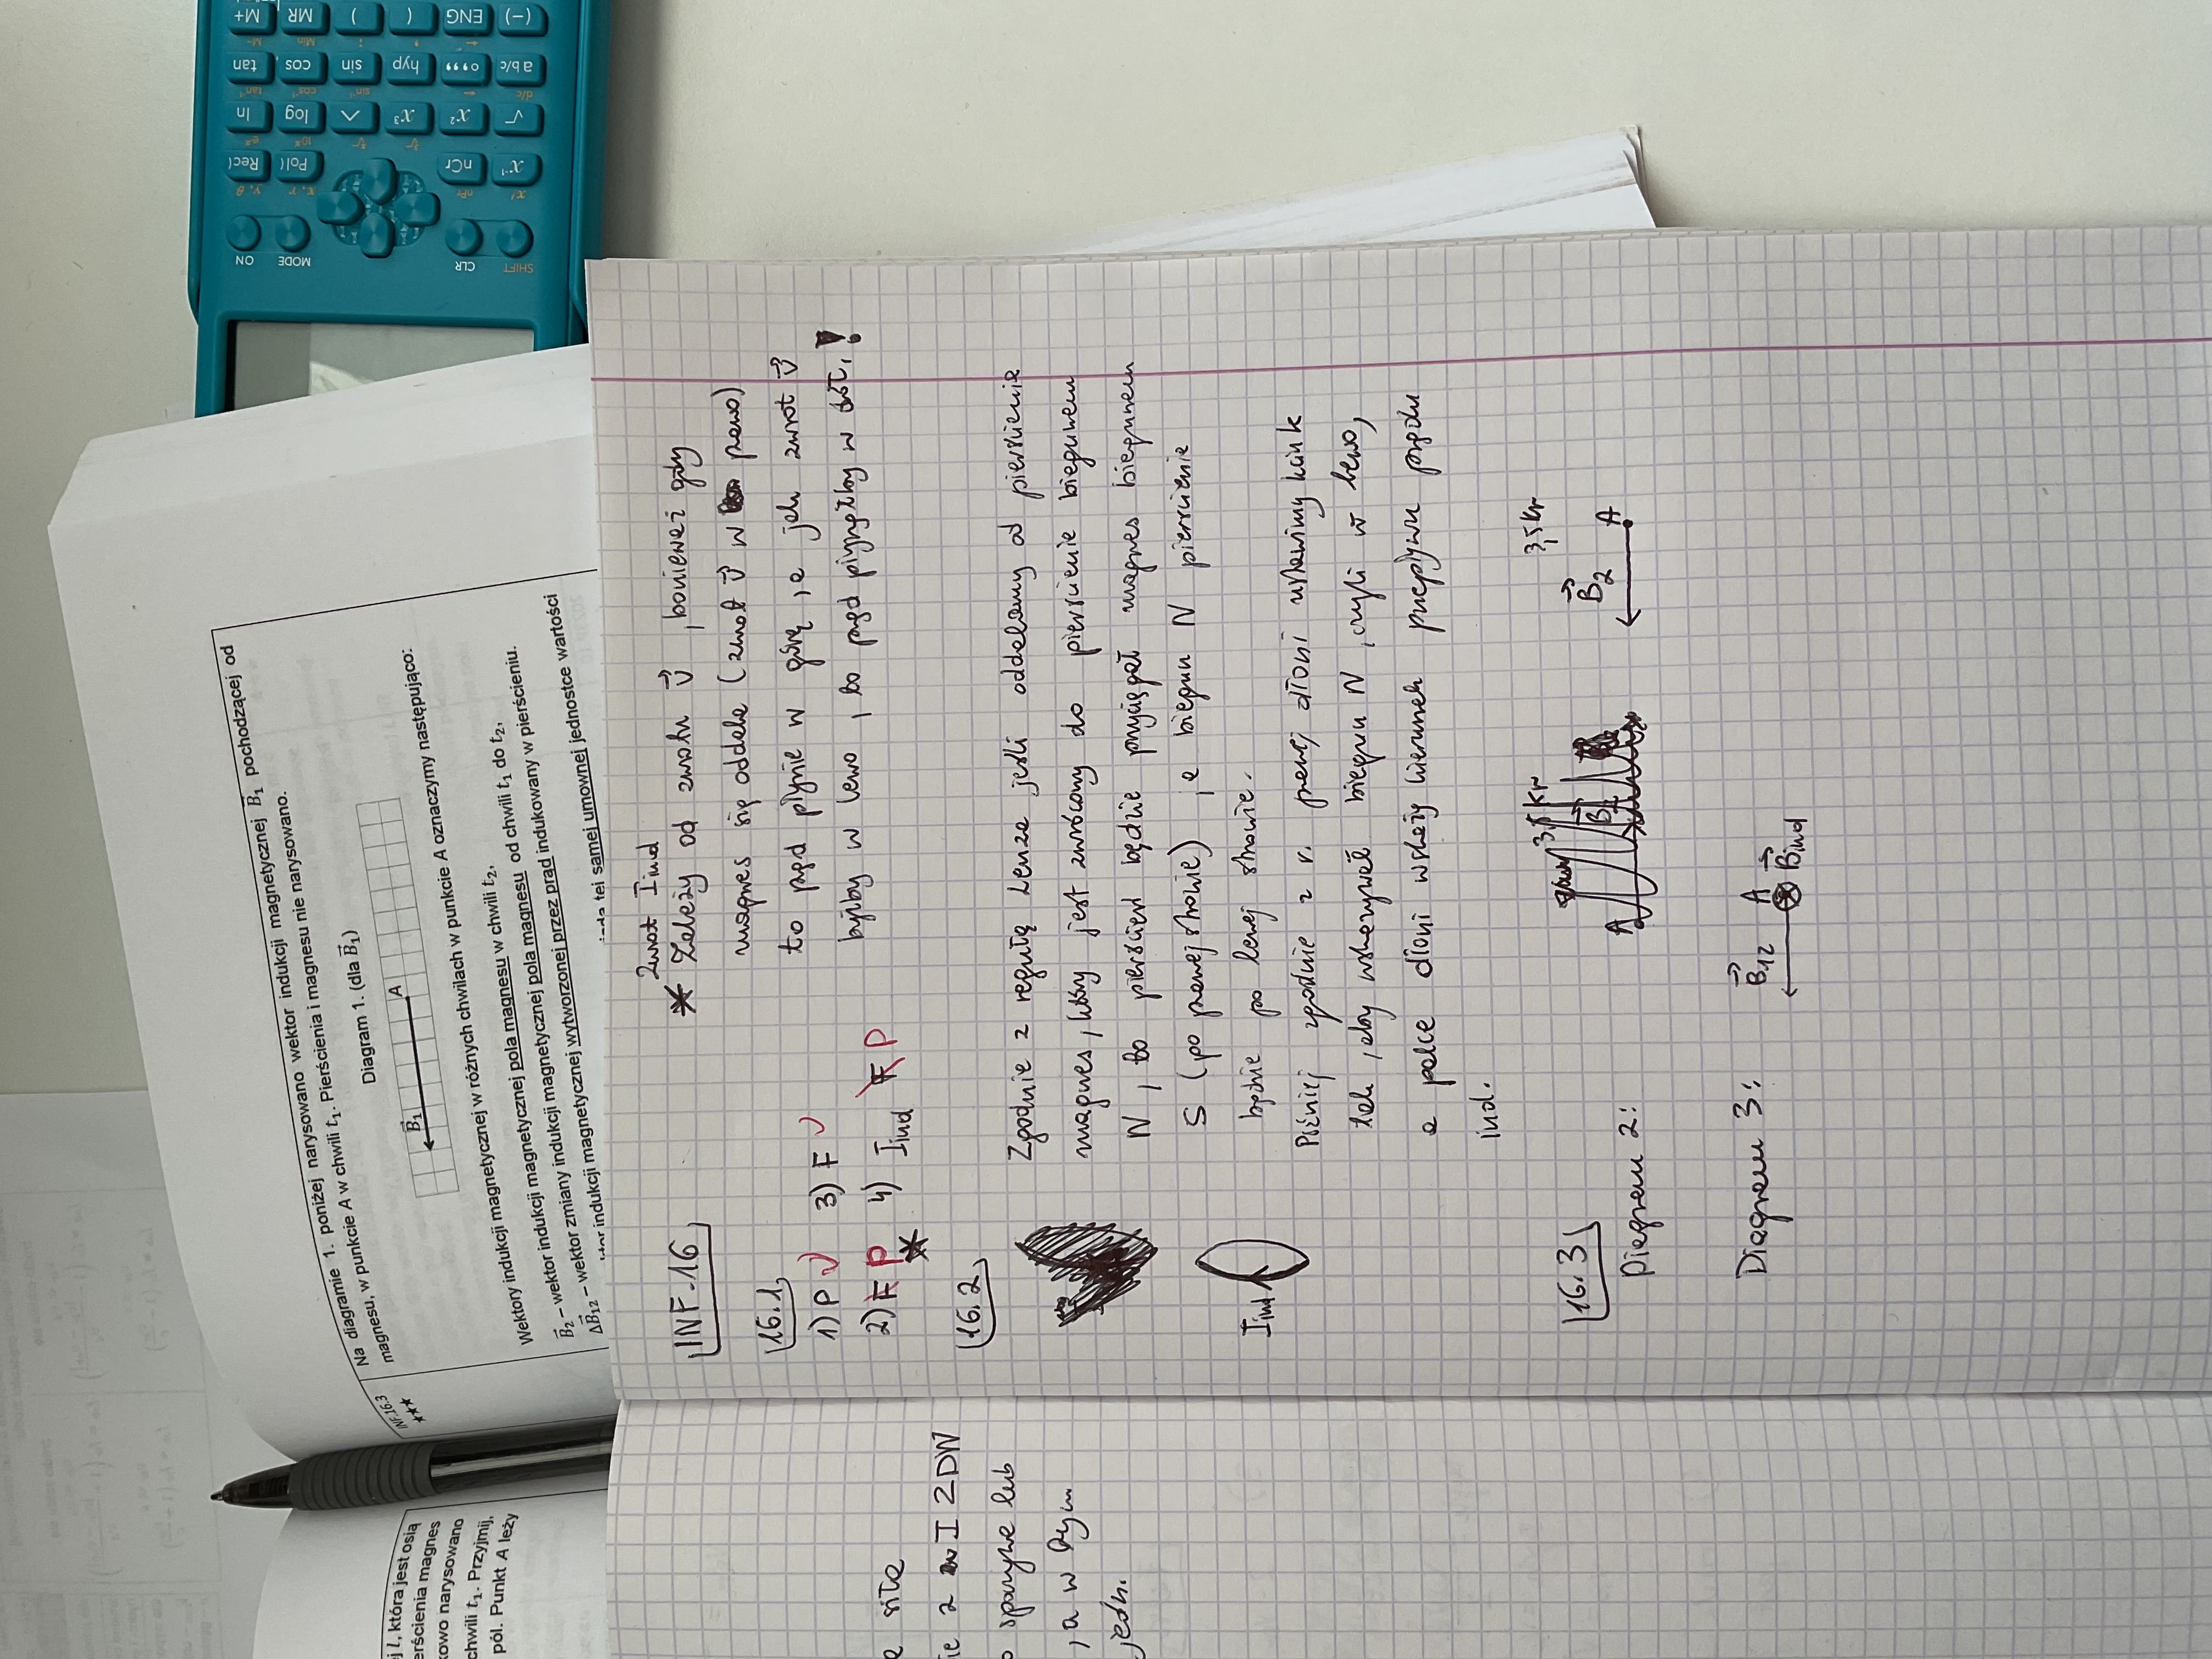 Na diagramie 1. poniżej narysowano wektor indukcji magnetycznej B⃗₁ pochodzącej od
magnesu, w punkcie A w chwili t₁. Pierścienia i magnesu nie narysowano.
Diagram 1. (dla B⃗₁)
B⃗₁ A
Wektory indukcji magnetycznej w różnych chwilach w punkcie A oznaczymy następująco:
B⃗₂ – wektor indukcji magnetycznej pola magnesu w chwili t₂,
ΔB⃗₁₂ – wektor zmiany indukcji magnetycznej pola magnesu od chwili t₁ do t₂,
indukcji magnetycznej wytworzonej przez prąd indukowany w pierścieniu.
tej samej umownej jednostce wartości
INF.16.3
***
l, która jest osią
erścienia magnes
kowo narysowano
chwili t₁. Przyjmij,
pól. Punkt A leży
INF.16
16.1
1) P √ 3) F √
2) F P 4) Iind F P
*
* zwrot Iind
Zależy od zwrotu v⃗, ponieważ gdy
magnes się oddala (zwrot v⃗ w prawo)
to prąd płynie w górę, a jak zwrot v⃗
byłby w lewo, to prąd w dół!
16.2
Iind
Zgodnie z regułą Lenza jeśli oddalamy od pierścienia
magnes, który jest zwrócony do pierścienia biegunem
N, to pierścień będzie przyciągał magnes biegunem
S (po prawej stronie), a biegun N pierścienia
będzie po lewej stronie.
Później zgodnie z r. prawej dłoni ustawimy kciuk
tak, aby wskazywał biegun N, czyli w lewo,
a palce dłoni wskażą kierunek przepływu prądu
ind.
16.3
3,5 kr
Diagram 2:
B⃗₂ A
Diagram 3:
B⃗₁₂ A
B⃗ind
siła
ie z I ZDN
o spoczywa lub
, a w
jedn.
ON MODE CLR SHIFT
Rec( Pol( nCr x⁻¹
ln log ^ x³ x² √
tan cos sin hyp °,,, a b/c
M+ MR ) ( ENG (-)